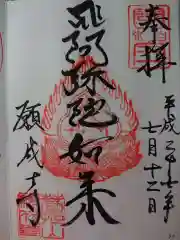 奉拝
平成二十七年
七月十二日
阿弥陀如来
願成寺